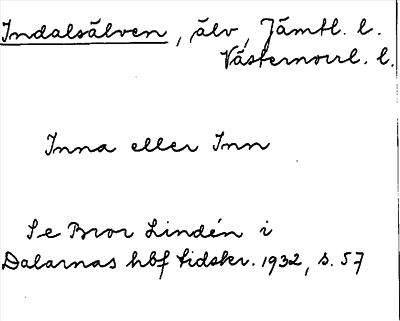 Indalsälven, älv, Jämtl. l.
Västernorrl. l.
Inna eller Inn
Se Bror Lindén i
Dalarnas hbf tidskr. 1932, s. 57